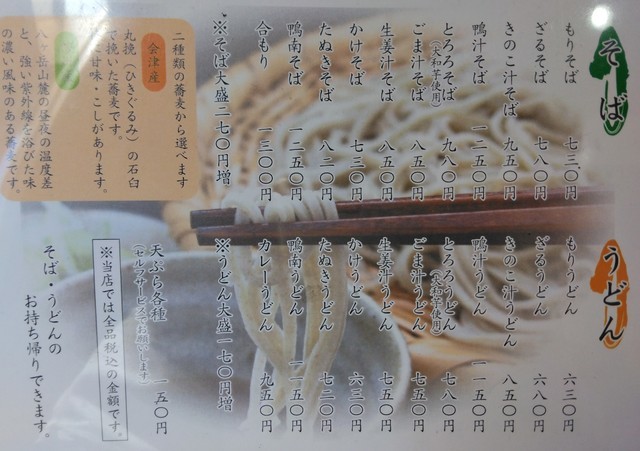 そば
もりそば 七三〇円
ざるそば 七八〇円
きのこ汁そば 九五〇円
鴨汁そば 一二五〇円
とろろそば 九八〇円
(大和芋使用)
ごま汁そば 八五〇円
生姜汁そば 八五〇円
かけそば 七三〇円
たぬきそば 八二〇円
鴨南そば 一二五〇円
合もり 一三〇〇円
※そば大盛二七〇円増
二種類の蕎麦から選べます
会津産
丸挽(ひきぐるみ)の石臼
で挽いた蕎麦です。
甘味・こしがあります。
八ヶ岳山麓の昼夜の温度差
と、強い紫外線を浴びた味
の濃い風味のある蕎麦です。
うどん
もりうどん 六三〇円
ざるうどん 六八〇円
きのこ汁うどん 八五〇円
鴨汁うどん 一一五〇円
とろろうどん 七八〇円
(大和芋使用)
ごま汁うどん 七五〇円
生姜汁うどん 七五〇円
かけうどん 六三〇円
たぬきうどん 七二〇円
鴨南うどん 一一五〇円
カレーうどん 九五〇円
※うどん大盛一七〇円増
天ぷら各種 一五〇円
(セルフサービスでお願いします)
※当店では全品税込の金額です。
そば・うどんの
お持ち帰りできます。